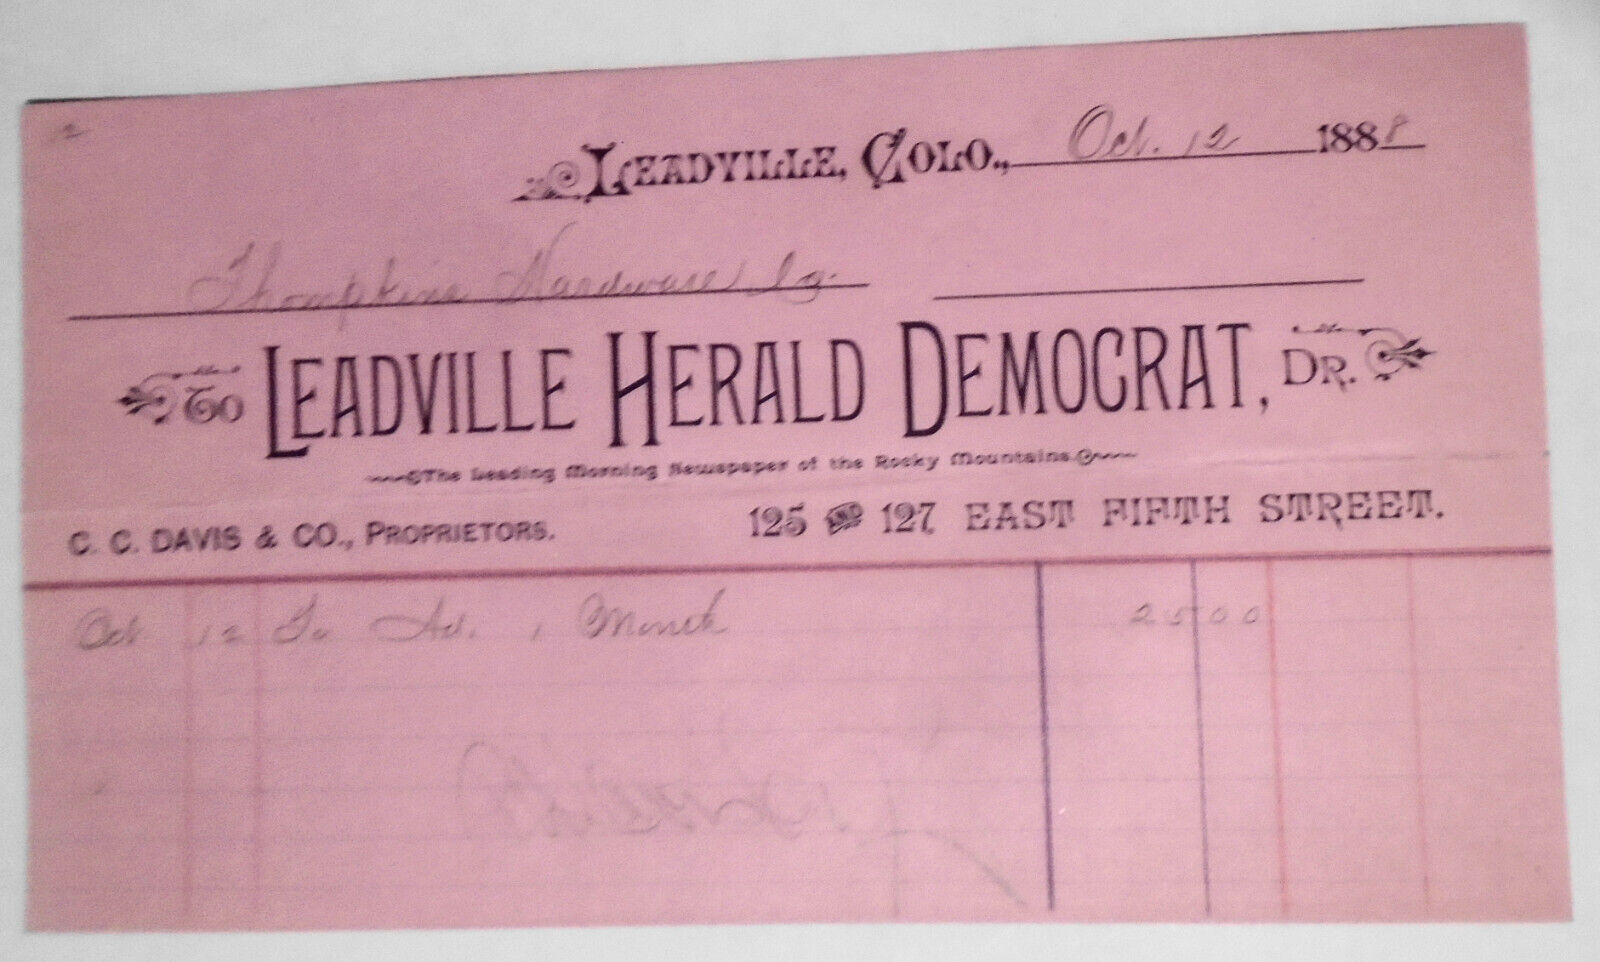 LEADVILLE, COLO., Oct. 12 1888
Thompkins Hardware Co.
TO LEADVILLE HERALD DEMOCRAT, DR.
The Leading Morning Newspaper of the Rocky Mountains.
C. C. DAVIS & CO., PROPRIETORS. 125 AND 127 EAST FIFTH STREET.
Oct 12 To Ad. 1 Month 25 00